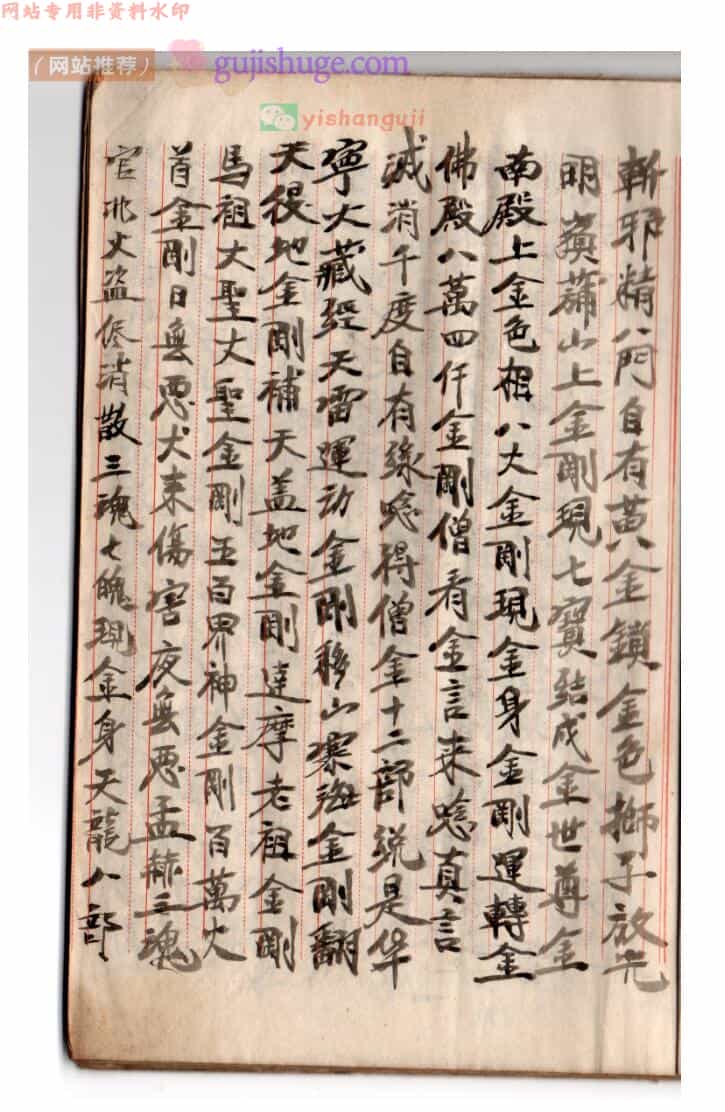 网站专用非资料水印
(网站推荐)
gujishuge.com
yishanguji
斬邪精八門自有黃金鎖金色獅子放光
明 山上金剛現七寶結成金世尊金
南殿上金色相八大金剛現金身金剛運轉金
佛殿八萬四仟金剛僧看金言来唸真言
消千度自有缘唸得僧金十二部説是华
寧大藏經天雷運动金剛移山寨海金剛翻
天復地金剛補天盖地金剛達摩老祖金剛
馬祖大聖大聖金剛五百界神金剛百萬火
首金剛日無恶犬来傷害夜無恶孟赫三魂
官非火盗侭消散三魂七魄現金身天龍八部